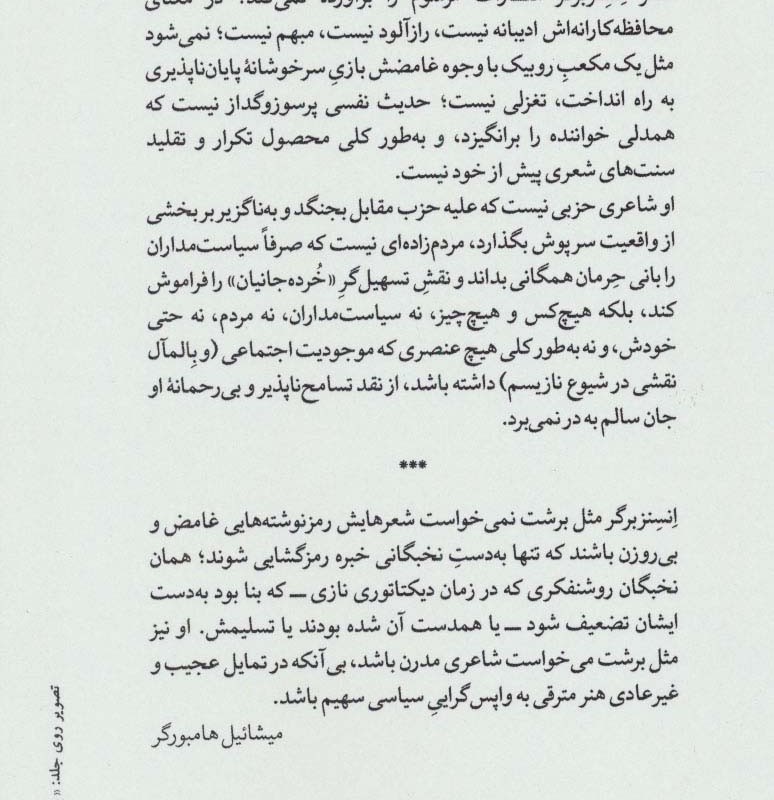 محافظه‌کارانه‌اش ادیبانه نیست، رازآلود نیست، مبهم نیست؛ نمی‌شود
مثل یک مکعبِ روبیک با وجوه غامضش بازیِ سرخوشانهٔ پایان‌ناپذیری
به راه انداخت، تغزلی نیست؛ حدیث نفسی پرسوزوگداز نیست که
همدلی خواننده را برانگیزد، و به‌طور کلی محصول تکرار و تقلید
سنت‌های شعری پیش از خود نیست.
او شاعری حزبی نیست که علیه حزب مقابل بجنگد و به‌ناگزیر بر بخشی
از واقعیت سرپوش بگذارد، مردم‌زاده‌ای نیست که صرفاً سیاست‌مداران
را بانی حِرمان همگانی بداند و نقشِ تسهیل‌گرِ «خُرده‌جانیان» را فراموش
کند، بلکه هیچ‌کس و هیچ‌چیز، نه سیاست‌مداران، نه مردم، نه حتی
خودش، و نه به‌طور کلی هیچ عنصری که موجودیت اجتماعی (و بِالمآل
نقشی در شیوع نازیسم) داشته باشد، از نقد تسامح‌ناپذیر و بی‌رحمانهٔ او
جان سالم به در نمی‌برد.
***
اِنسِنزبرگر مثل برشت نمی‌خواست شعرهایش رمزنوشته‌هایی غامض و
بی‌روزن باشند که تنها به‌دستِ نخبگانی خبره رمزگشایی شوند؛ همان
نخبگان روشنفکری که در زمان دیکتاتوری نازی ـــ که بنا بود به‌دست
ایشان تضعیف شود ـــ یا همدست آن شده بودند یا تسلیمش. او نیز
مثل برشت می‌خواست شاعری مدرن باشد، بی‌آنکه در تمایل عجیب و
غیرعادی هنر مترقی به واپس‌گراییِ سیاسی سهیم باشد.
میشائیل هامبورگر
تصویر روی جلد: «